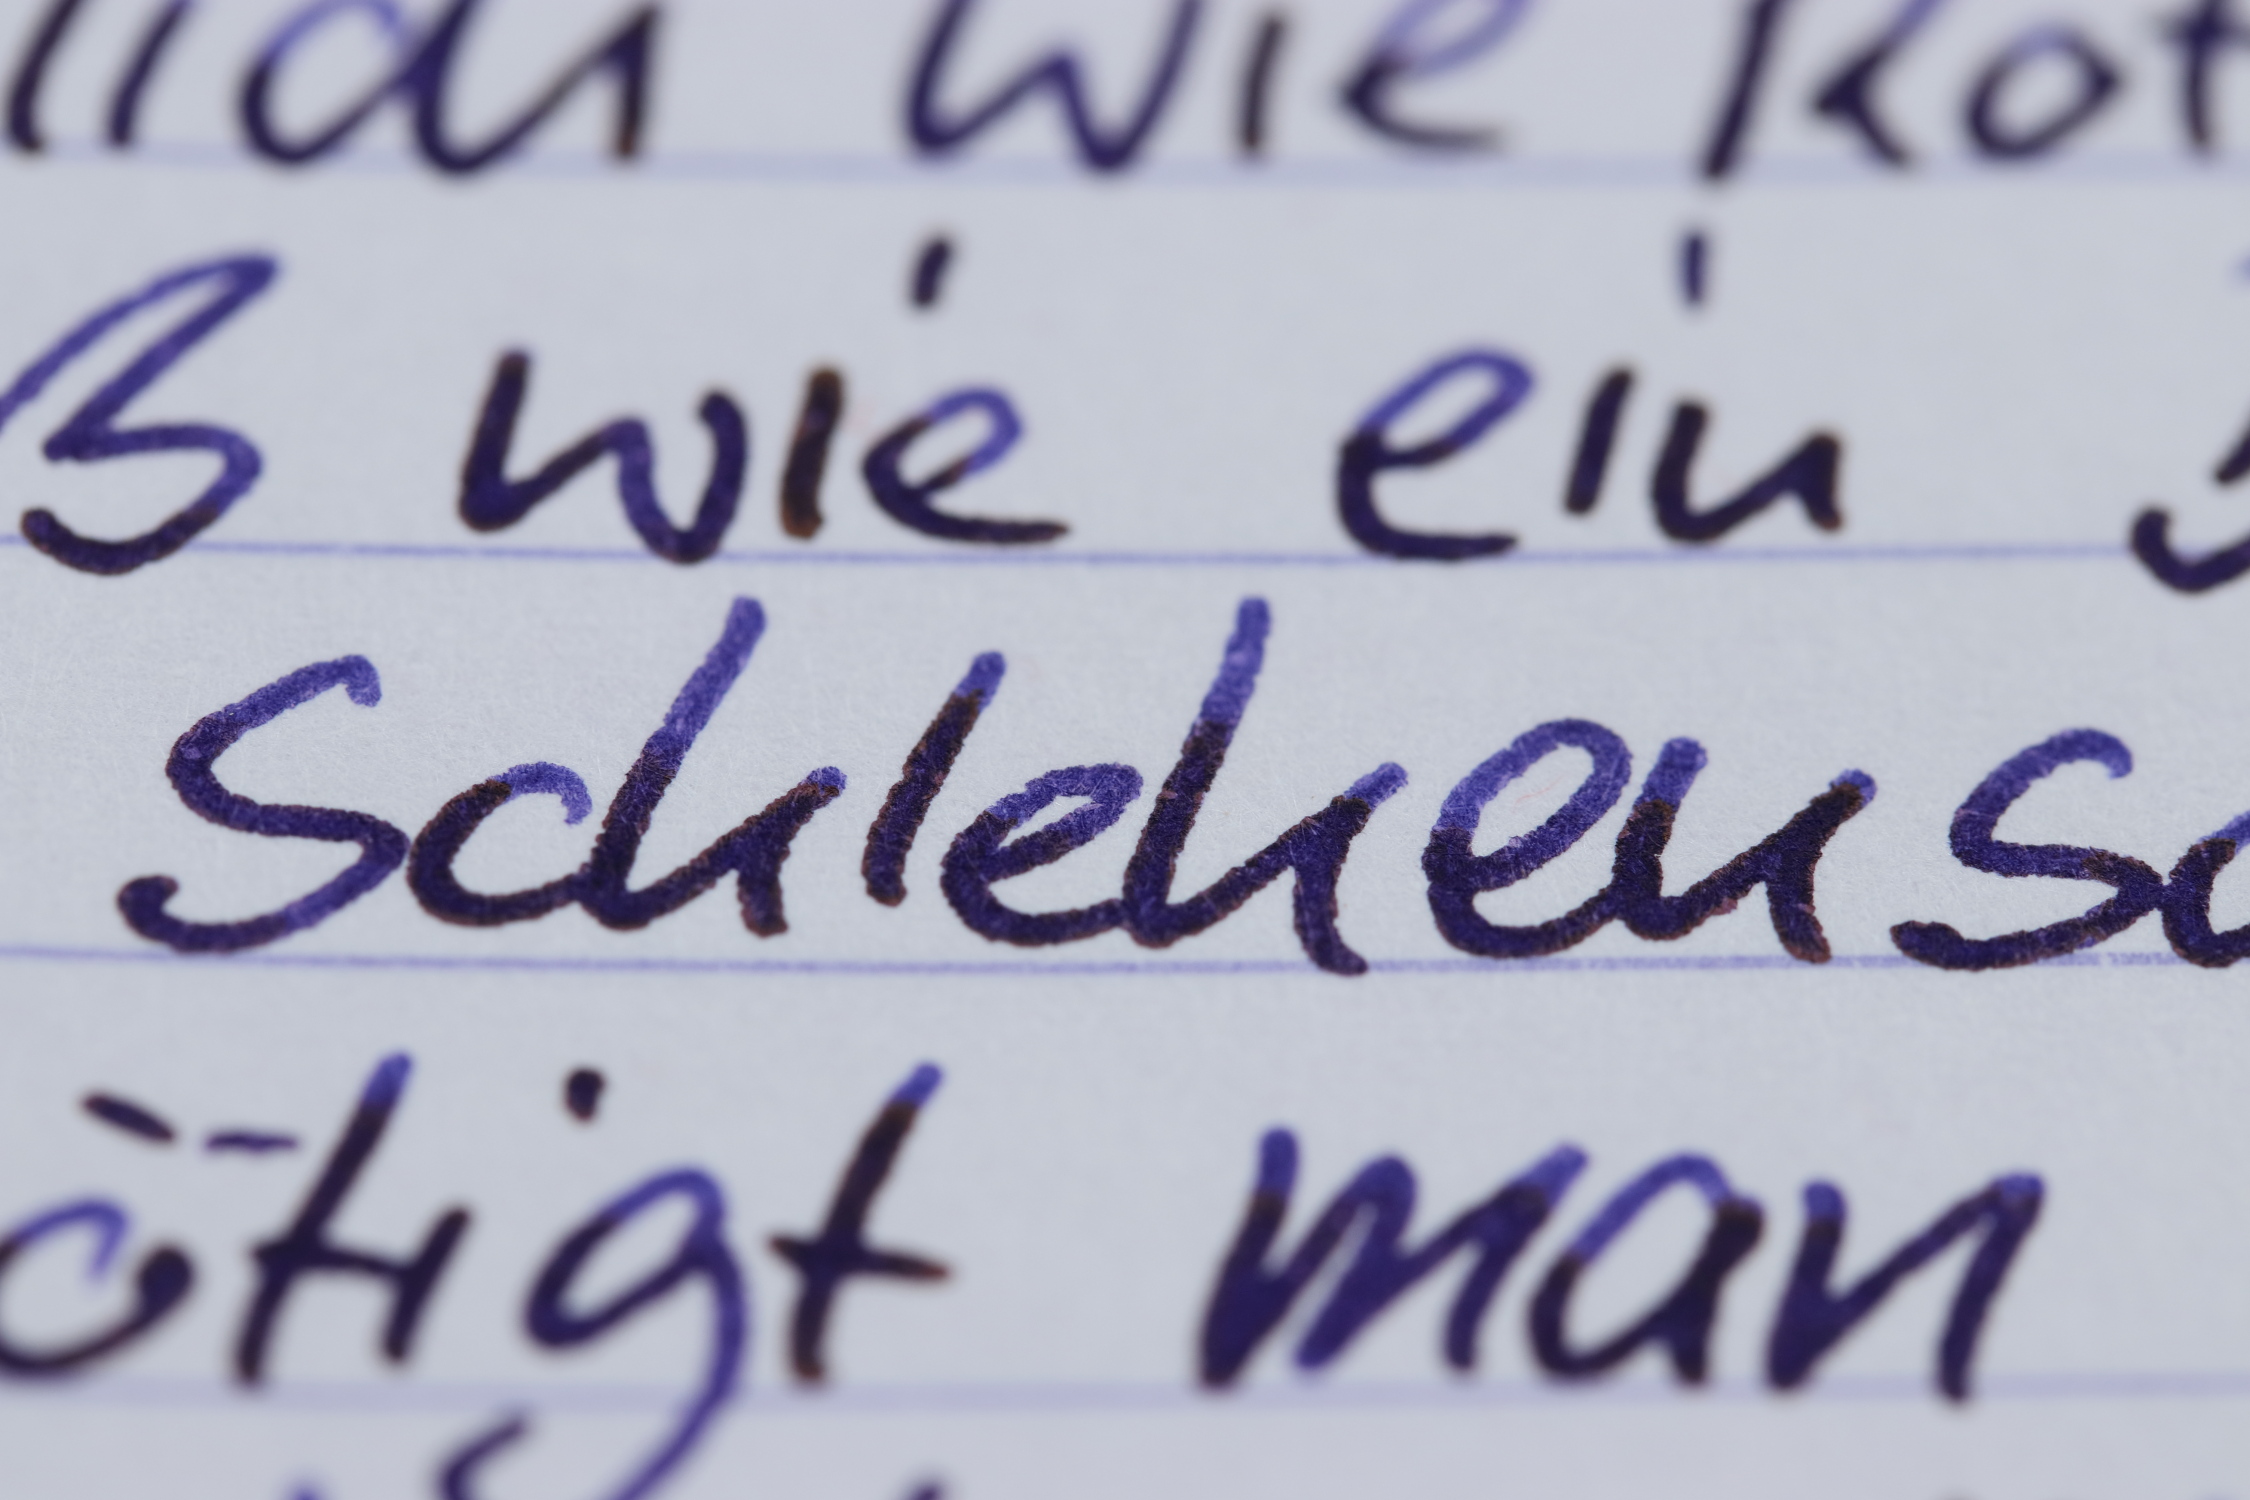 lich wie Rot
ß wie ein
Schlehensc
ötigt man